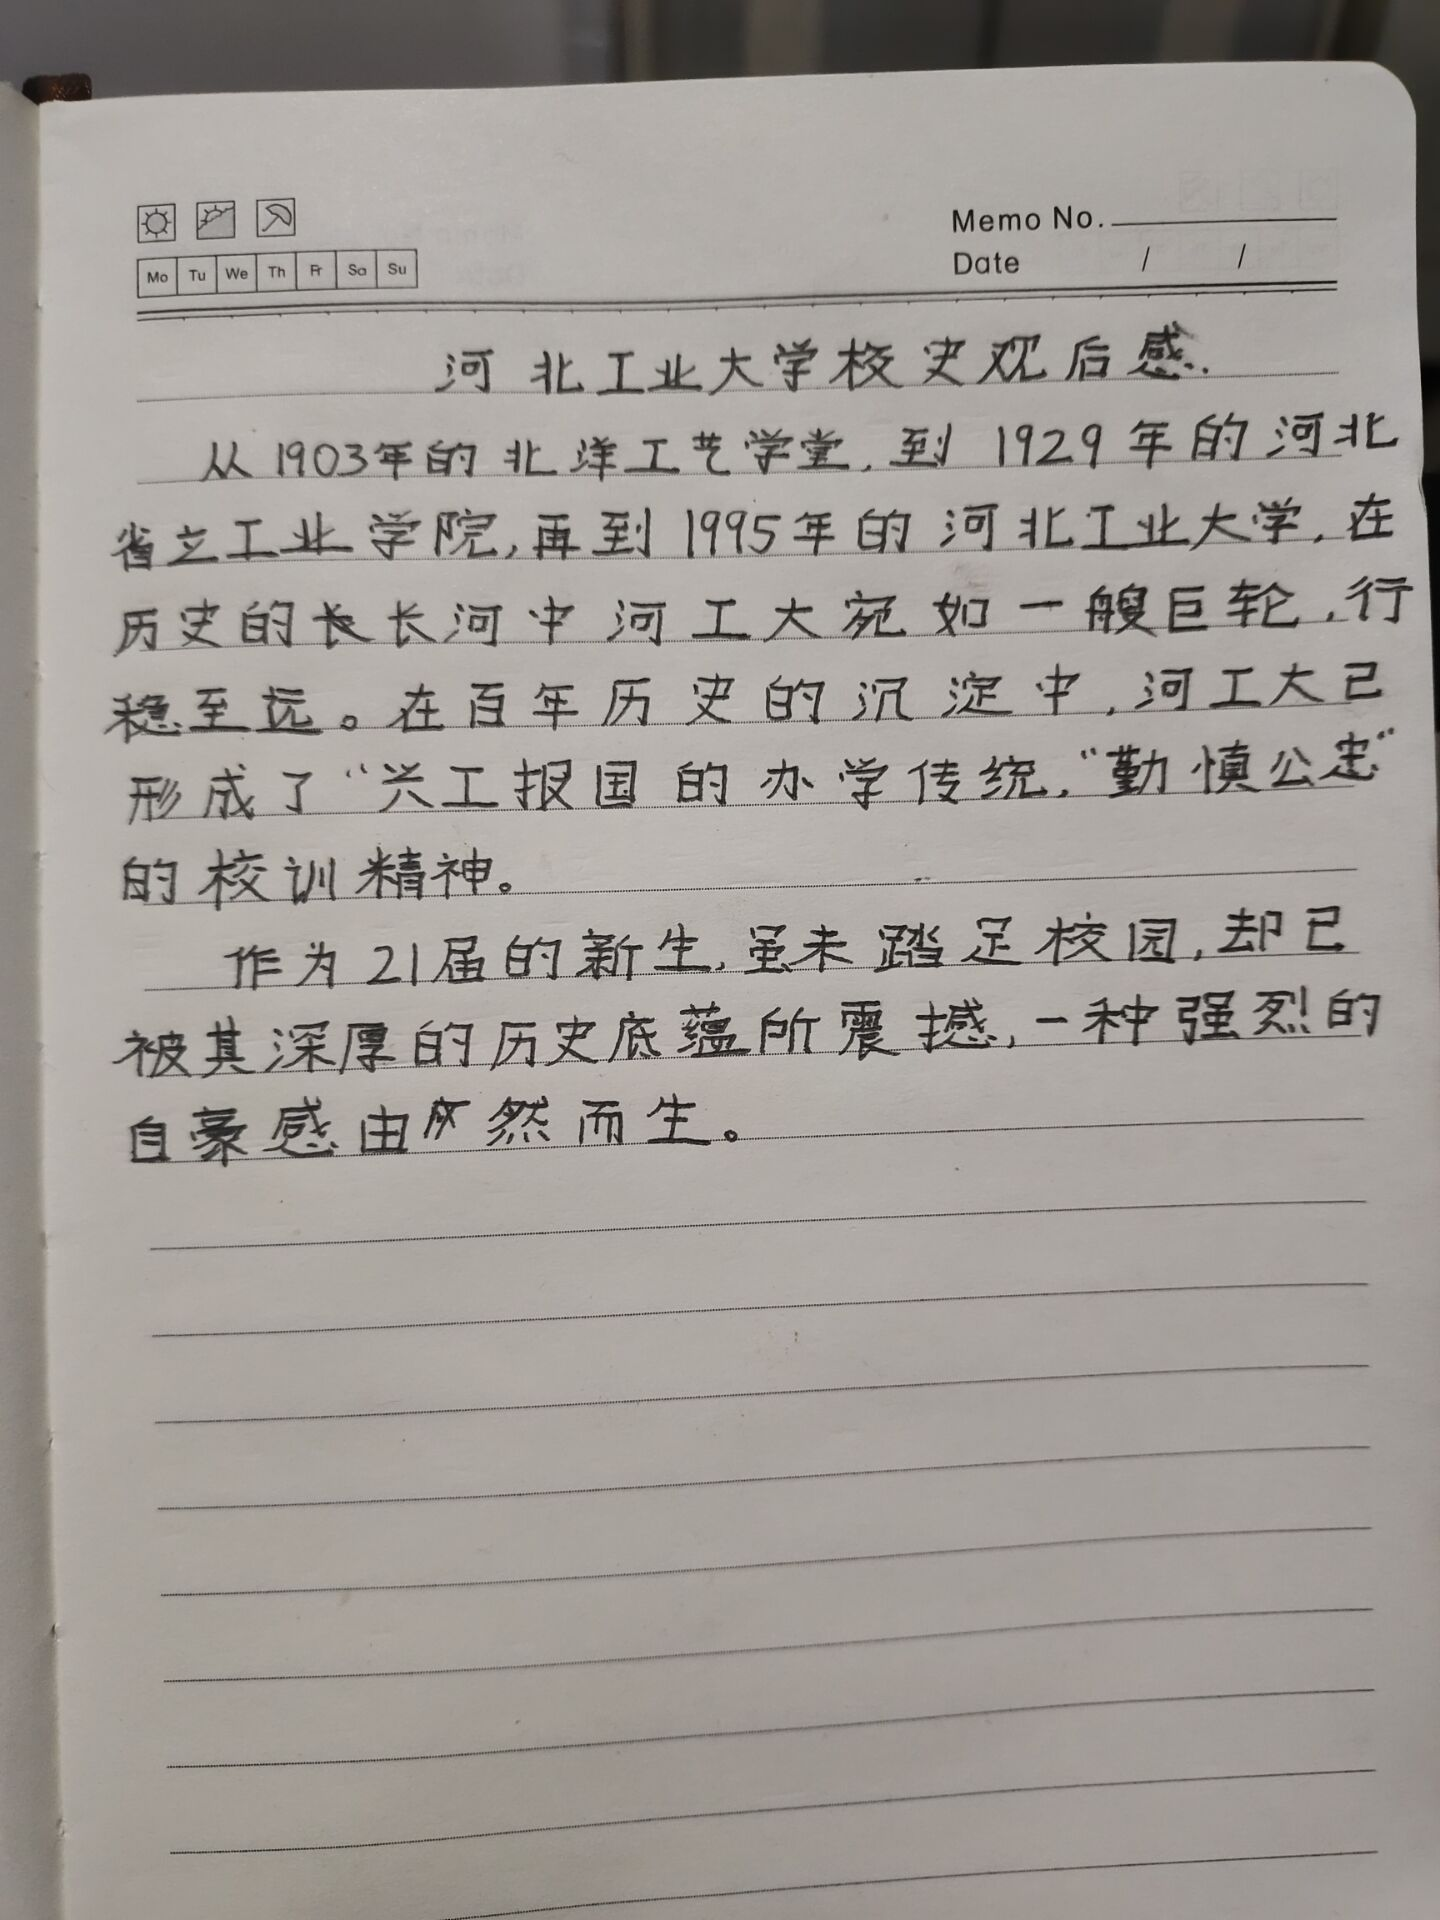 Memo No.
Mo Tu We Th Fr Sa Su
Date / /
河北工业大学校史观后感.
从1903年的北洋工艺学堂,到1929年的河北
省立工业学院,再到1995年的河北工业大学,在
历史的长长河中河工大宛如一艘巨轮,行
稳至远。在百年历史的沉淀中,河工大已
形成了“兴工报国的办学传统,“勤慎公忠”
的校训精神。
作为21届的新生,虽未踏足校园,却已
被其深厚的历史底蕴所震撼,一种强烈的
自豪感由然而生。